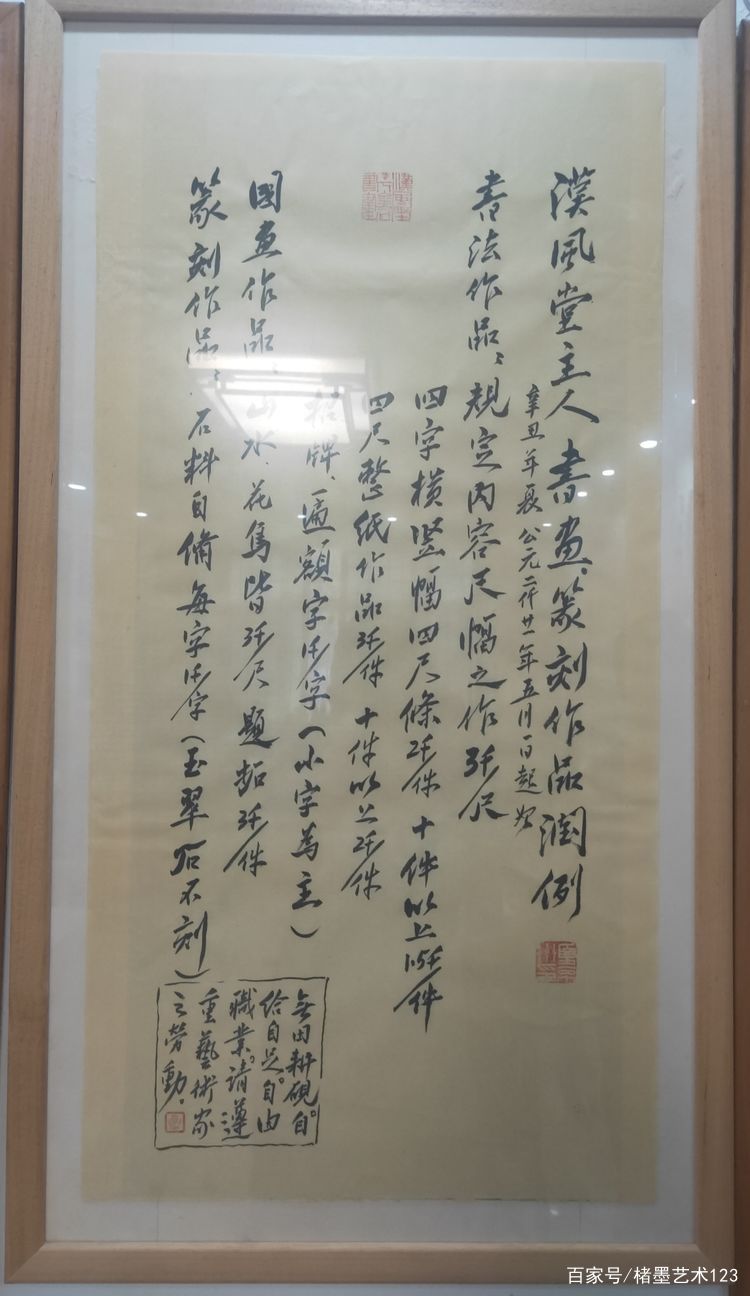 漢風堂主人書畫、篆刻作品潤例
辛丑年夏 公元二仟廿一年五月一日起始
書法作品：規定内容尺幅之作3千/尺
四字横竖幅四尺條2千/件 十件以上1.5千/件
四尺整纸作品3千/件 十件以上2千/件
牌、匾額字1千/字（小字為主）
國畫作品：山水、花鳥皆3千/尺 題拓3千/件
篆刻作品：石料自備每字1千/字（玉翠石不刻）
無田耕硯。自
給自足。自由
職業。請遵
重藝術家
之勞動。
百家号/楮墨艺术123